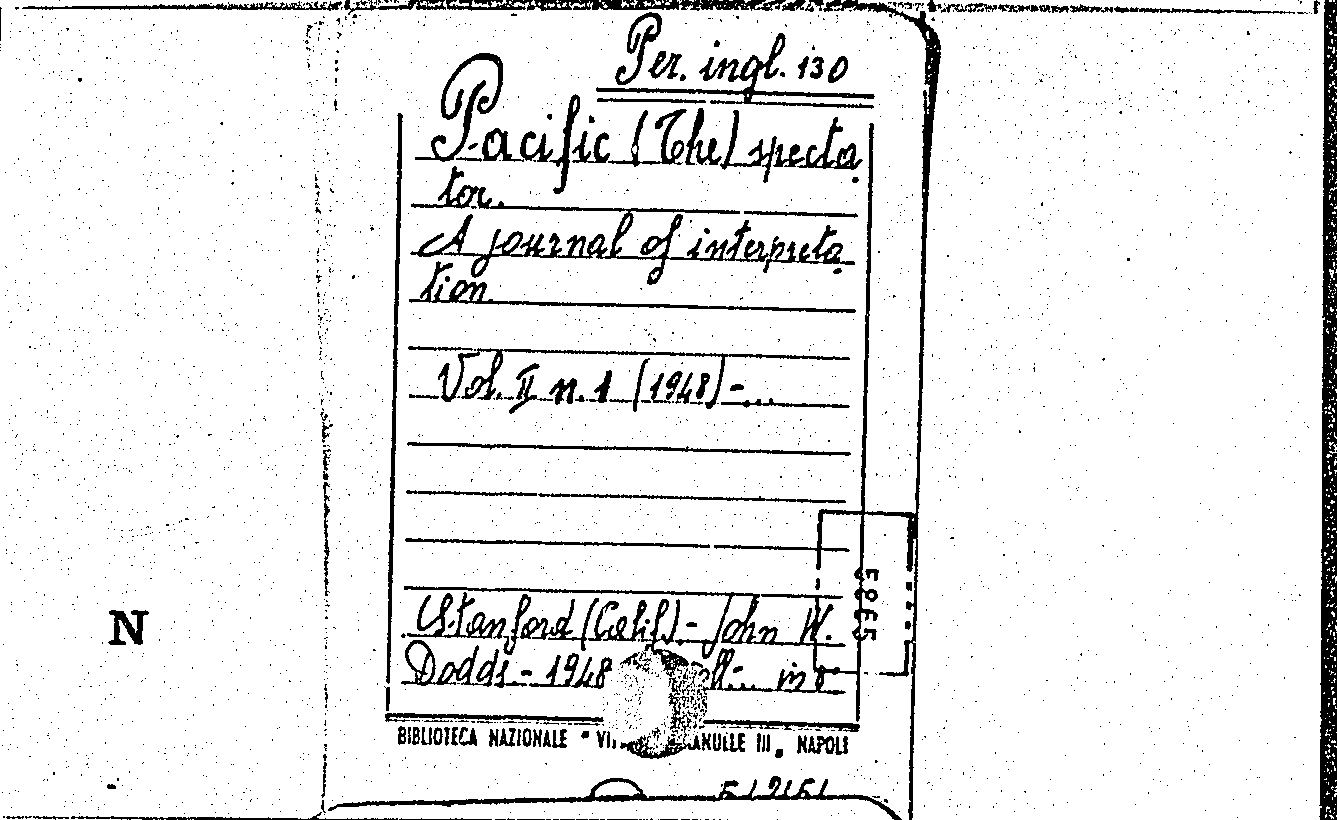 Per. ingl. 130
Pacific (The) specta
tor.
A journal of interpreta
tion
Vol. II n. 1 (1948)-...
Stanford (Calif.) - John W.
Dodds - 1948 in 8°
BIBLIOTECA NAZIONALE " III „ NAPOLI
N